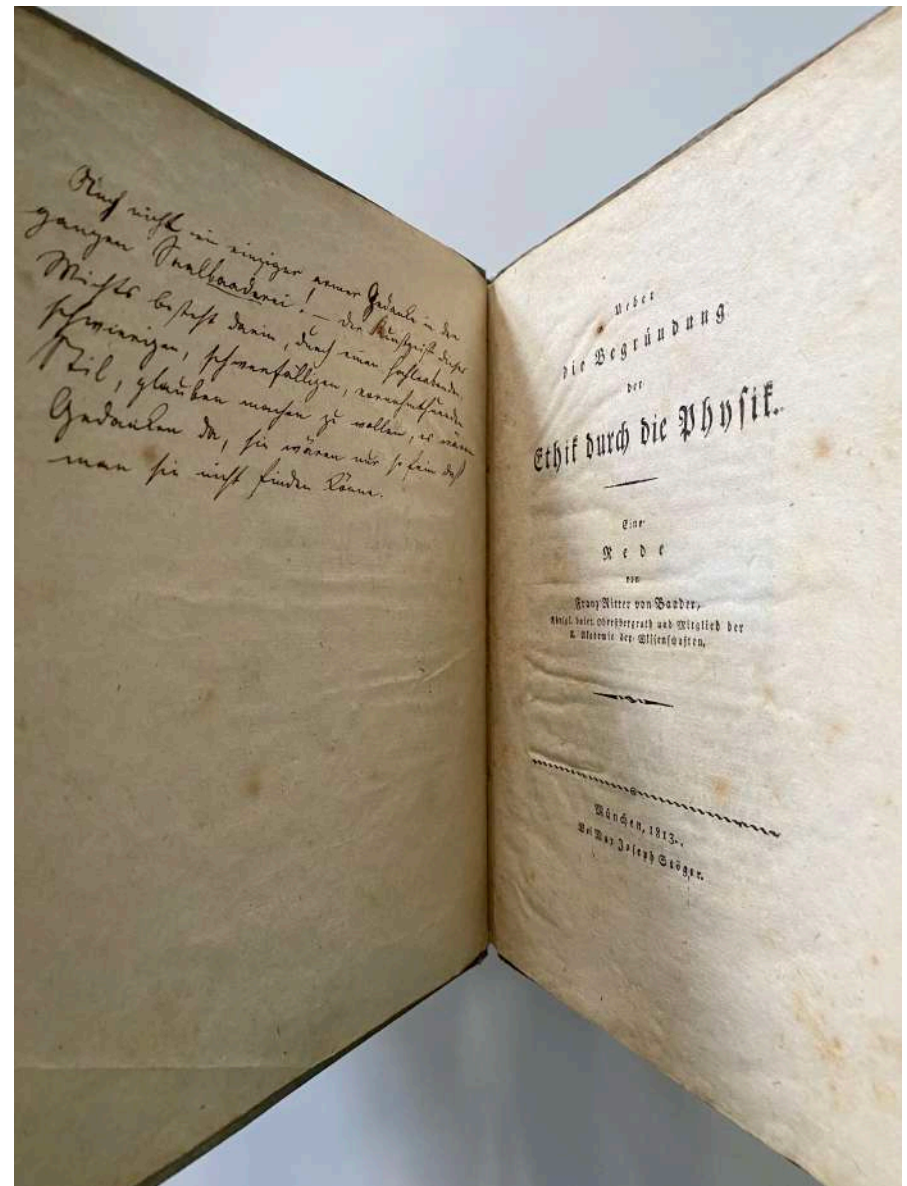 Auch nicht ein einziger armer Gedanke in der
ganzen Saalbaaderei! — Der Kunstgriff dieses
Wichts besteht darin, durch einen hochtrabenden,
schwierigen, schwerfälligen, vornehmthuenden
Stil, glauben machen zu wollen, es wären
Gedanken da, sie wären nur so fein daß
man sie nicht finden könne.
Ueber
die Begründung
der
Ethik durch die Physik.
Eine
Rede
von
Franz Ritter von Baader,
Königl. baier. Oberstbergrath und Mitglied der
K. Akademie der Wissenschaften.
München, 1813.
Bei Max Joseph Stöger.